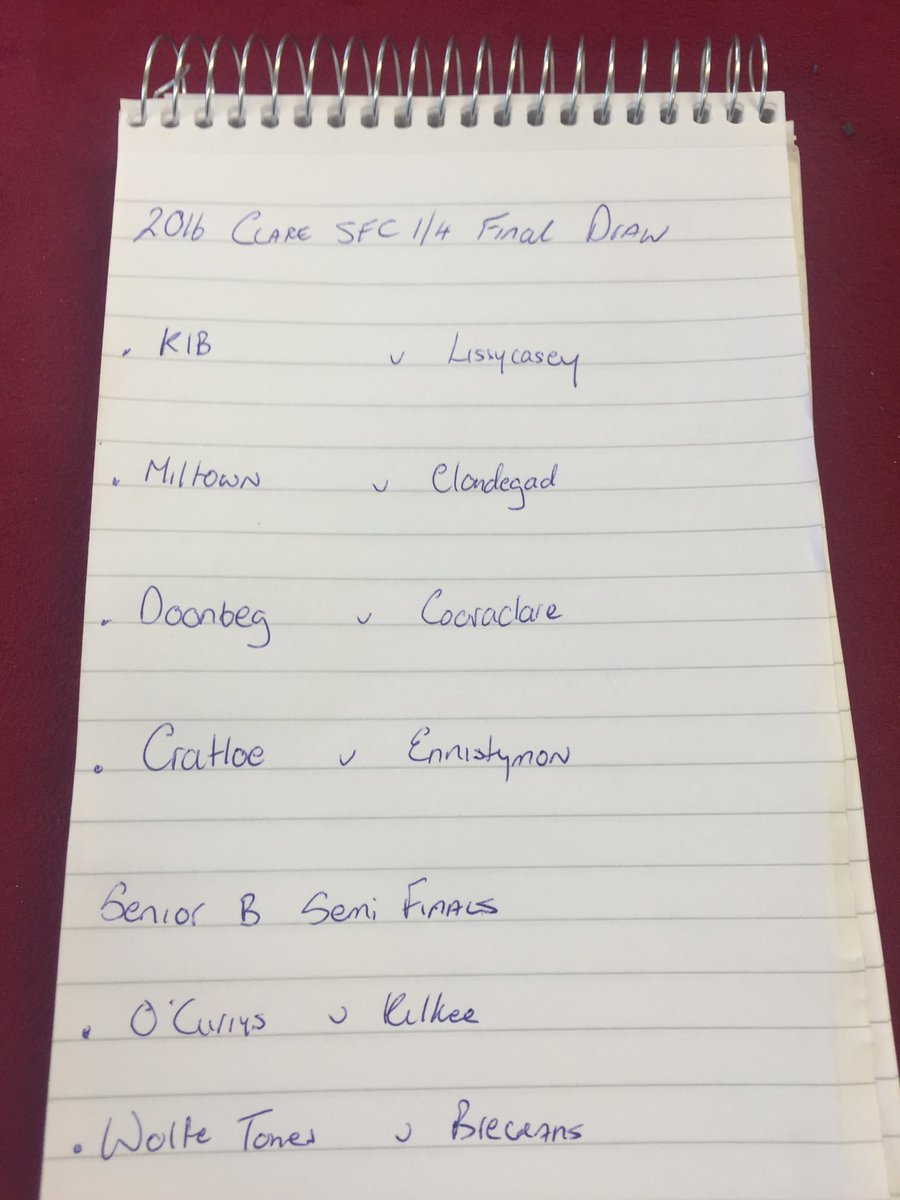 2016 CLARE SFC 1/4 Final DRAW
. KIB v Lissycasey
. Miltown v Clondegad
. Doonbeg v Cooraclare
. Cratloe v Ennistymon
Senior B Semi FINALS
. O'Currys v Kilkee
. Wolfe Tones v Breckans